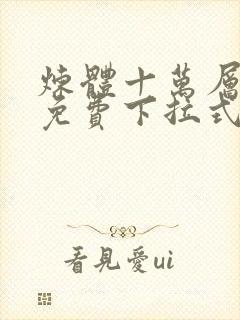 煉體十萬層
免費下拉式
看見愛ui